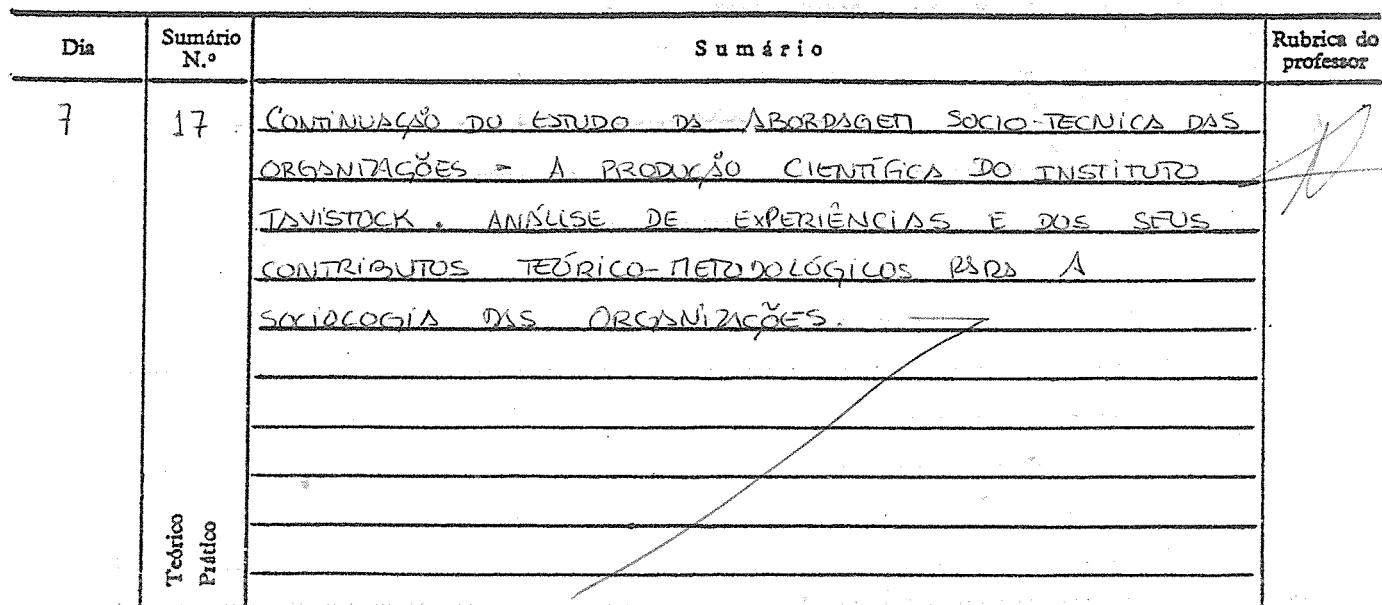 Dia
Sumário N.º
Sumário
Rubrica do professor
7
17
CONTINUAÇÃO DO ESTUDO DA ABORDAGEM SOCIO-TECNICA DAS
ORGANIZAÇÕES - A PRODUÇÃO CIENTÍFICA DO INSTITUTO
TAVISTOCK. ANÁLISE DE EXPERIÊNCIAS E DOS SEUS
CONTRIBUTOS TEÓRICO-METODOLÓGICOS PARA A
SOCIOLOGIA DAS ORGANIZAÇÕES.
Teórico
Prático